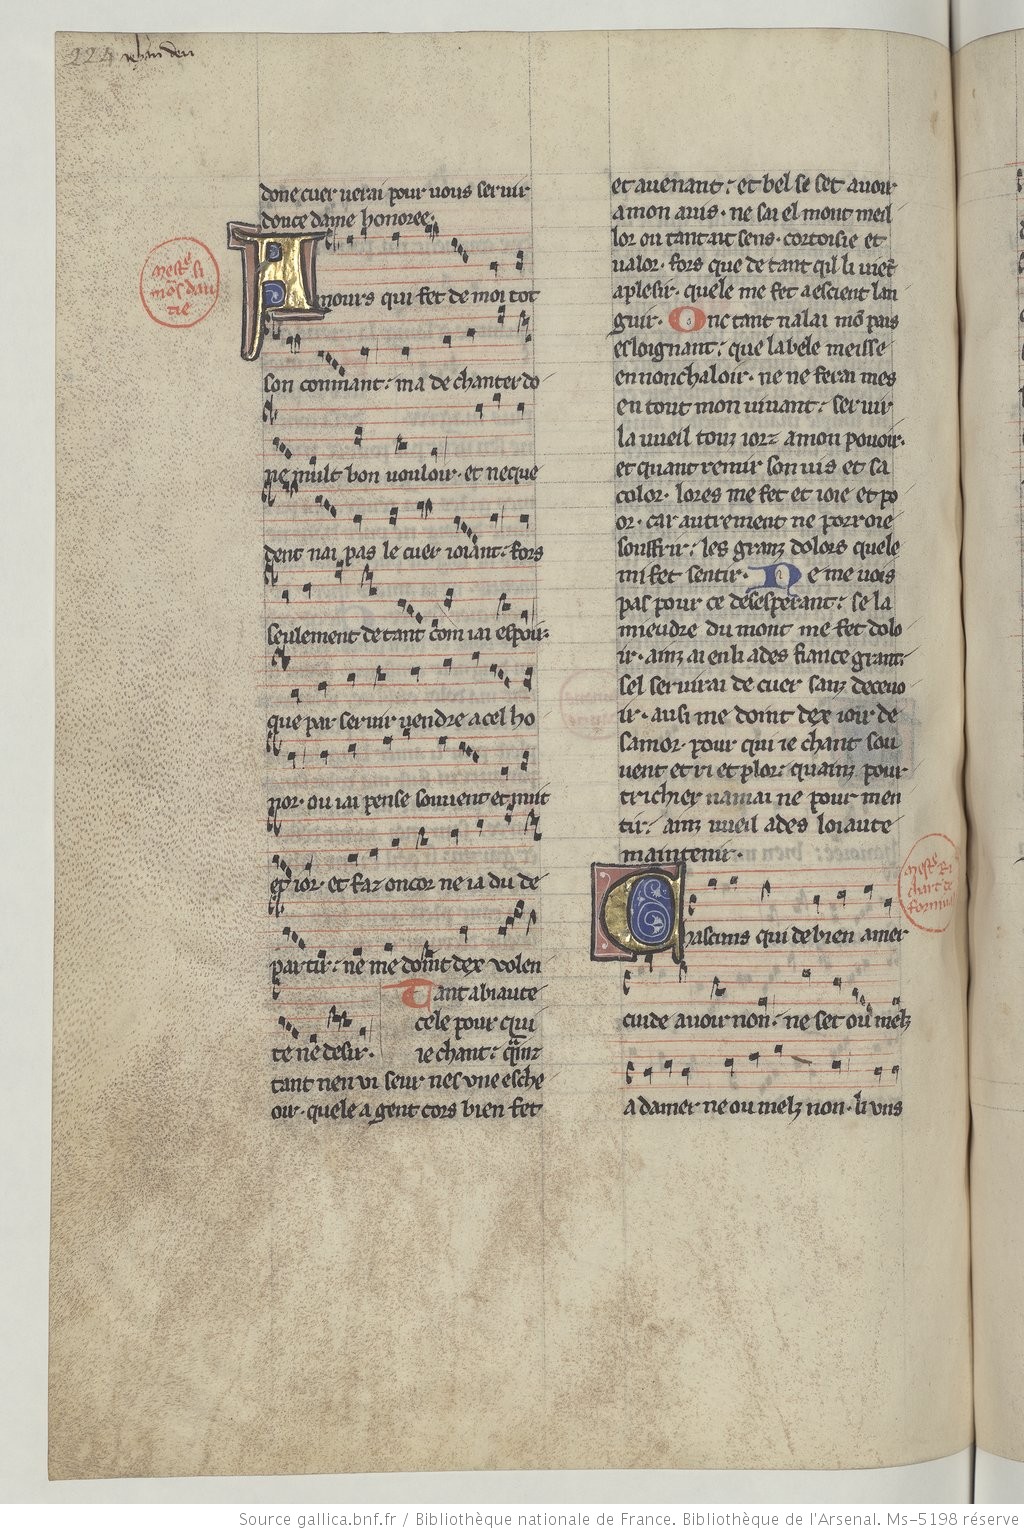 224
done cuer uerai pour uous seruir
douce dame honoree.
mestre si
mōs dau
tie
Amours qui fet de moi tot
son conmant: ma de chanter do
ne mult bon uouloir. et neque
dent nai pas le cuer ioiant: fors
seulement de tant com iai espoir
que par seruir uendre a cel ho
nor. ou iai pense souuent et nuit
et ior. et faz oncor ne ia du de
partir: ne me doint dex uolen
te ne desir.
Tant a biaute
cele pour qui
ie chant: qant
tant nen ui seur nes une esche
oir. quele a gent cors bien fet
et auenant: et bel se set auoir
a mon auis. ne sai el mont meil
lor ou tant ait sens. cortoisie et
ualor. fors que de tant qil li uiet
a plesir. quele me fet a escient lan
guir. Onc tant nalai mō pais
esloignant: que la bele meisse
en nonchaloir. ne ne ferai mes
en tout mon uiuant: seruir
la uueil touz iorz a mon pouoir.
et quant remir son uis et sa
color. lores me fet et ioie et po
or. car autrement ne porroie
souffrir: les granz dolors quele
mi fet sentir. Ne me uois
pas pour ce desesperant: se la
mieudre du mont me fet dolo
ir. ainz ai en li ades fiance grant:
sel seruirai de cuer sanz deceuo
ir. ausi me doint dex ioir de
samor. pour qui ie chant sou
uent et ri et plor: quainz pour
trichier namai ne pour men
tir: ainz uueil ades loiaute
maintenir.
mestre ri
chart de
forniual
Chascuns qui de bien amer
cuide auoir non: ne set ou melz
a damer ne ou melz non. li uns
Source gallica.bnf.fr / Bibliothèque nationale de France. Bibliothèque de l'Arsenal. Ms-5198 réserve